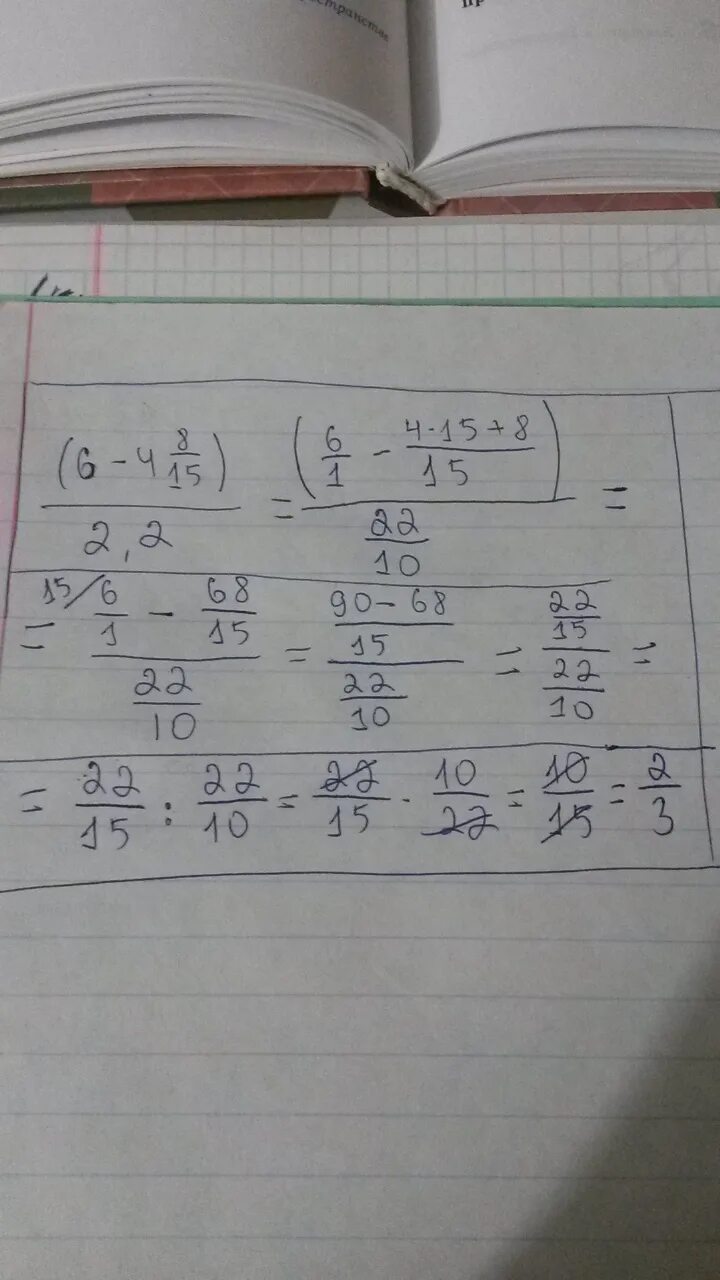 странстве
(6 - 4 8/15) / 2,2 = (6/1 - (4·15+8)/15) / (22/10) =
= (15/ 6/1 - 68/15) / (22/10) = ((90-68)/15) / (22/10) = (22/15) / (22/10) =
= 22/15 : 22/10 = 22/15 · 10/22 = 10/15 = 2/3